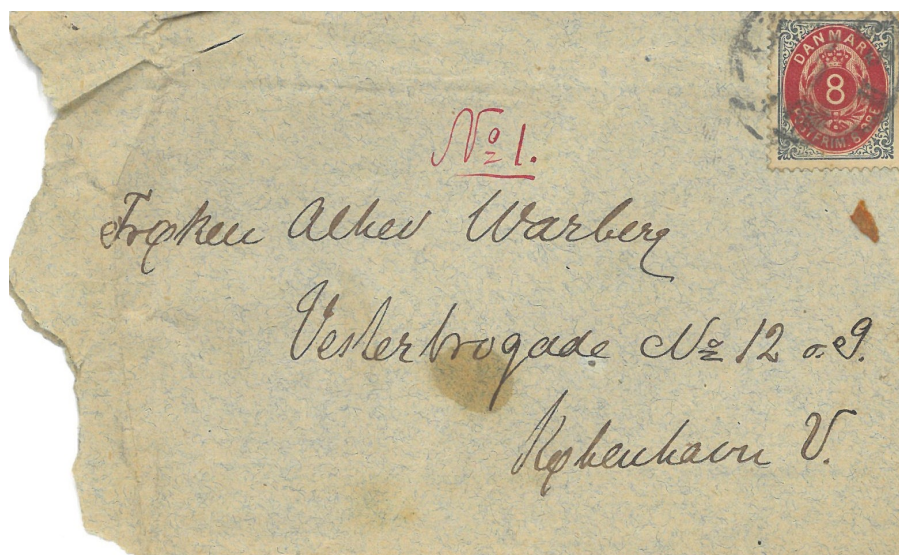 DANMARK
8
POSTFRIM. 8 ØRE
No 1.
Frøken Alhed Warberg
Vesterbrogade No 12 o. G.
København V.